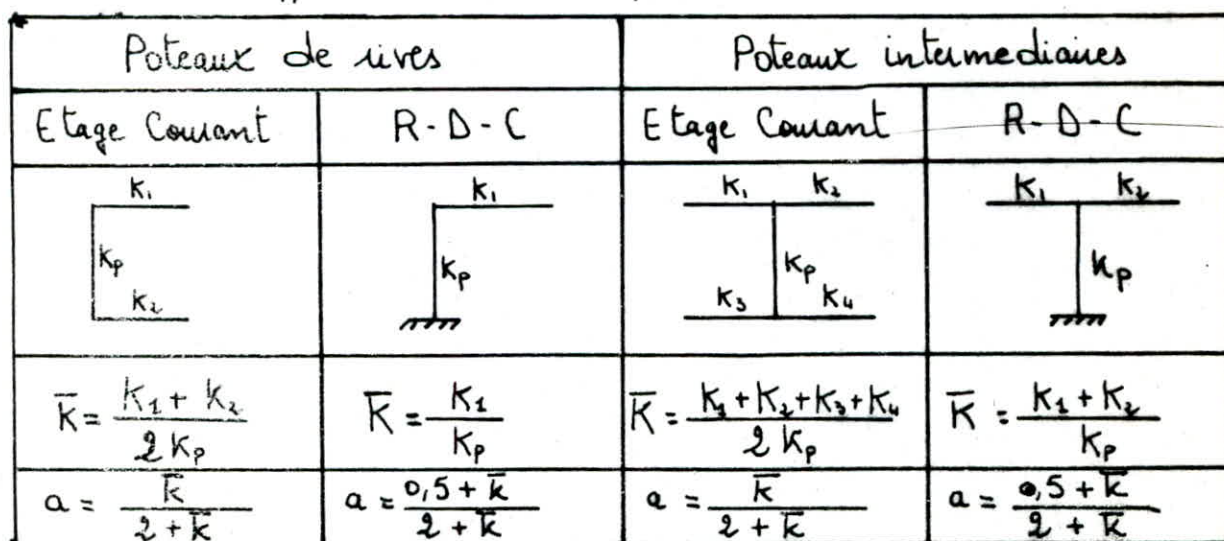 Poteaux de rives Poteaux intermediaires
Etage Courant R-D-C Etage Courant R-D-C
K₁ K₁ K₁ K₂ K₁ K₂
Kₚ Kₚ Kₚ Kₚ
K₂ K₃ K₄
K̄ = (K₁ + K₂) / (2 Kₚ) K̄ = K₁ / Kₚ K̄ = (K₁ + K₂ + K₃ + K₄) / (2 Kₚ) K̄ = (K₁ + K₂) / Kₚ
a = k̄ / (2 + k̄) a = (0,5 + k̄) / (2 + k̄) a = k̄ / (2 + k̄) a = (0,5 + k̄) / (2 + k̄)